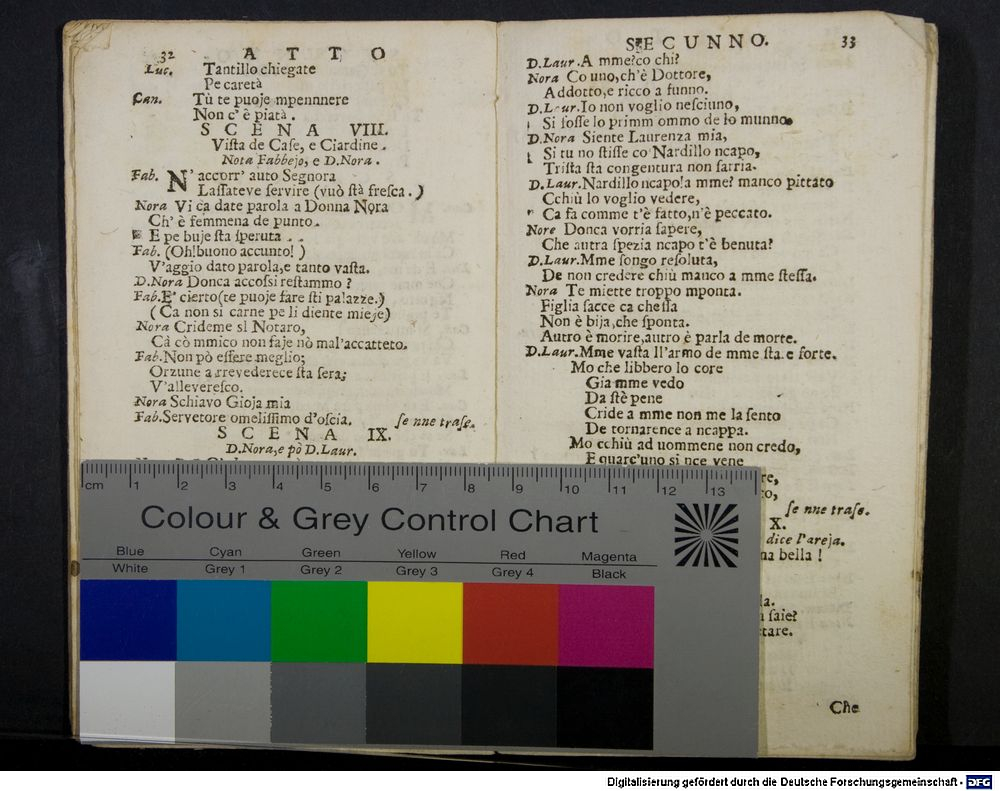 32 A T T O
Luc. Tantillo chiegate
Pe caretà
Can. Tù te puoje mpennnere
Non c' è piatà .
S C E N A VIII.
Viſta de Caſe, e Ciardine.
Nota Fabbejo, e D.Nora.
Fab. N' accorr' auto Segnora
Laſſateve ſervire (vuò ſtà freſca. )
Nora Vi ca date parola a Donna Nora
Ch' è femmena de punto.
E pe buje ſta ſperuta . .
Fab. (Oh!buono accunto! )
V'aggio dato parola,e tanto vaſta.
D.Nora Donca accoſsi reſtammo ?
Fab.E' cierto(te puoje fare ſti palazze.)
( Ca non si carne pe li diente mieje)
Nora Crideme sì Notaro,
Cà cò mmico non faje nò mal'accatteto.
Fab.Non pò eſſere meglio;
Orzune a rrevederece ſta ſera;
V'alleverefco.
Nora Schiavo Gioja mia
Fab.Servetore omeliſſimo d'oſcia. ſe nne traſe.
S C E N A IX.
D.Nora,e pò D.Laur.
SECUNNO. 33
D.Laur.A mme?co chi?
Nora Co uno,ch'è Dottore,
Addotto,e ricco a funno.
D.Laur.Io non voglio neſciuno,
Si foſſe lo primm ommo de lo munno.
D.Nora Siente Laurenza mia,
Si tu no ſtiſſe co Nardillo ncapo,
Triſta ſta congentura non ſarria.
D.Laur.Nardillo ncapo!a mme? manco pittato
Cchiù lo voglio vedere,
Ca fa comme t'è fatto,n'è peccato.
Nore Donca vorria ſapere,
Che autra ſpezia ncapo t'è benuta?
D.Laur.Mme ſongo reſoluta,
De non credere chiù manco a mme ſteſſa.
Nora Te miette troppo mponta.
Figlia facce ca cheſſa
Non è bija,che ſponta.
Autro è morire,autro è parla de morte.
D.Laur.Mme vaſta ll'armo de mme ſta.e forte.
Mo che libbero lo core
Gia mme vedo
Da ſtè pene
Cride a mme non me la ſento
De tornarence a ncappa.
Mo cchiù ad uommene non credo,
E quarc'uno si nce vene
re,
to,
ſe nne traſe.
X.
dice l'areja.
na bella !
la.
ſaie?
tare.
Che
cm 1 2 3 4 5 6 7 8 9 10 11 12 13
Colour & Grey Control Chart
Blue Cyan Green Yellow Red Magenta
White Grey 1 Grey 2 Grey 3 Grey 4 Black
Digitalisierung gefördert durch die Deutsche Forschungsgemeinschaft - DFG